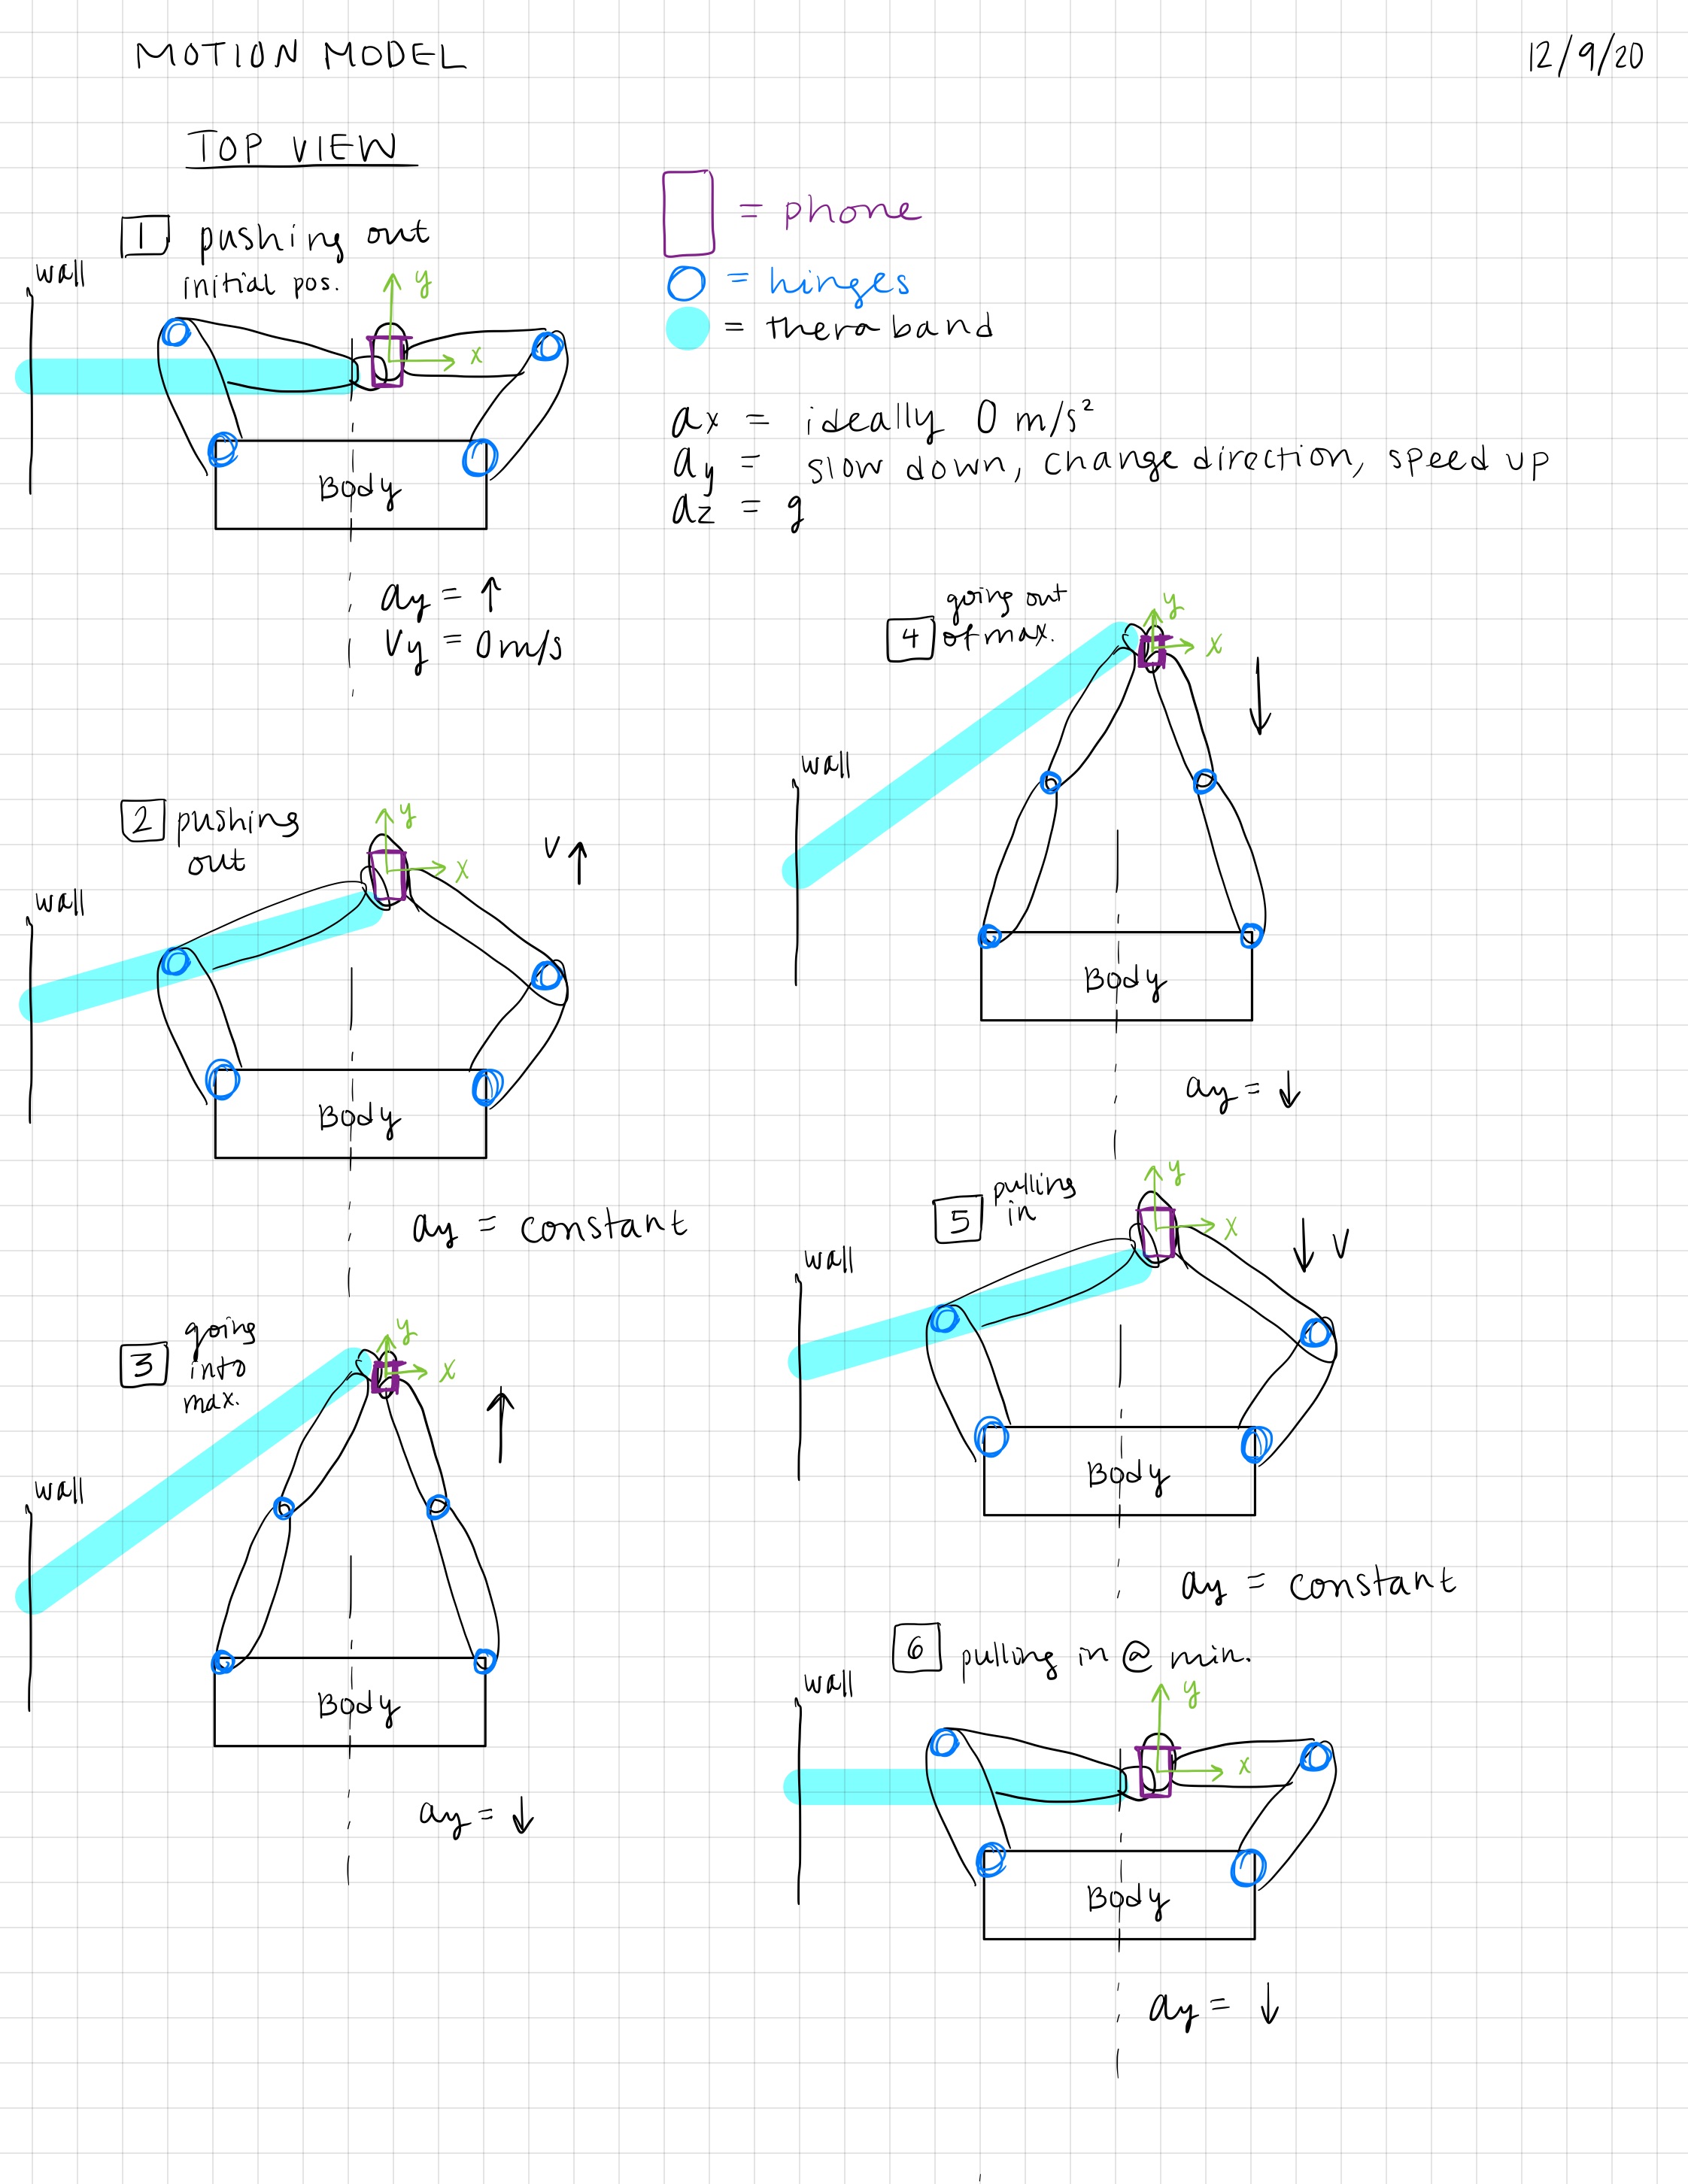 MOTION MODEL
12/9/20
TOP VIEW
= phone
= hinges
= thera band
ax = ideally 0 m/s²
ay = slow down, change direction, speed up
az = g
1 pushing out
initial pos.
wall
y
x
Body
ay = ↑
Vy = 0 m/s
2 pushing
out
y
V ↑
x
wall
Body
ay = constant
3 going
into
max.
y
x
wall
Body
ay = ↓
4 going out
of max.
y
x
wall
Body
ay = ↓
5 pulling
in
y
x
↓ V
wall
Body
ay = constant
6 pulling in @ min.
wall
y
x
Body
ay = ↓